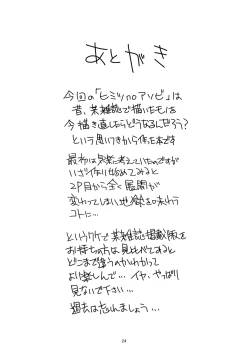 あとがき
今回の「ヒミツnoアソビ」は
昔、某雑誌で描いたモノを
今描き直したらどうなるだろう?
という思いつきから作った本です
最初は気楽に考えていたのですが
いざ作り始めてみると
2P目から全く展開が
変わってしまい地獄を味わう
コトに…
というワケで某雑誌掲載版を
お持ちの方は見比べてみると
どこまで違うのかわかって
より楽しんで…イヤ、やっぱり
見ないで下さい…
過去は忘れましょう…
24